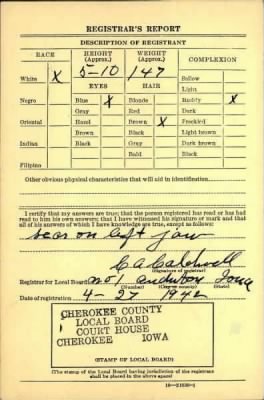 REGISTRAR'S REPORT
DESCRIPTION OF REGISTRANT
RACE HEIGHT (Approx.) WEIGHT (Approx.) COMPLEXION
White X 5-10 147 Sallow
EYES HAIR Light
Negro Blue X Blonde Ruddy X
Gray Red Dark
Oriental Hazel Brown X Freckled
Brown Black Light brown
Indian Black Gray Dark brown
Bald Black
Filipino
Other obvious physical characteristics that will aid in identification
I certify that my answers are true; that the person registered has read or has had
read to him his own answers; that I have witnessed his signature or mark and that
all of his answers of which I have knowledge are true, except as follows:
scar on left jaw
C A Caldwell
(Signature of registrar)
Registrar for Local Board No 1 Audubon Iowa
(Number) (City or county) (State)
Date of registration 4-27 1942
CHEROKEE COUNTY
LOCAL BOARD
COURT HOUSE
CHEROKEE IOWA
(STAMP OF LOCAL BOARD)
(The stamp of the Local Board having jurisdiction of the registrant
shall be placed in the above space)